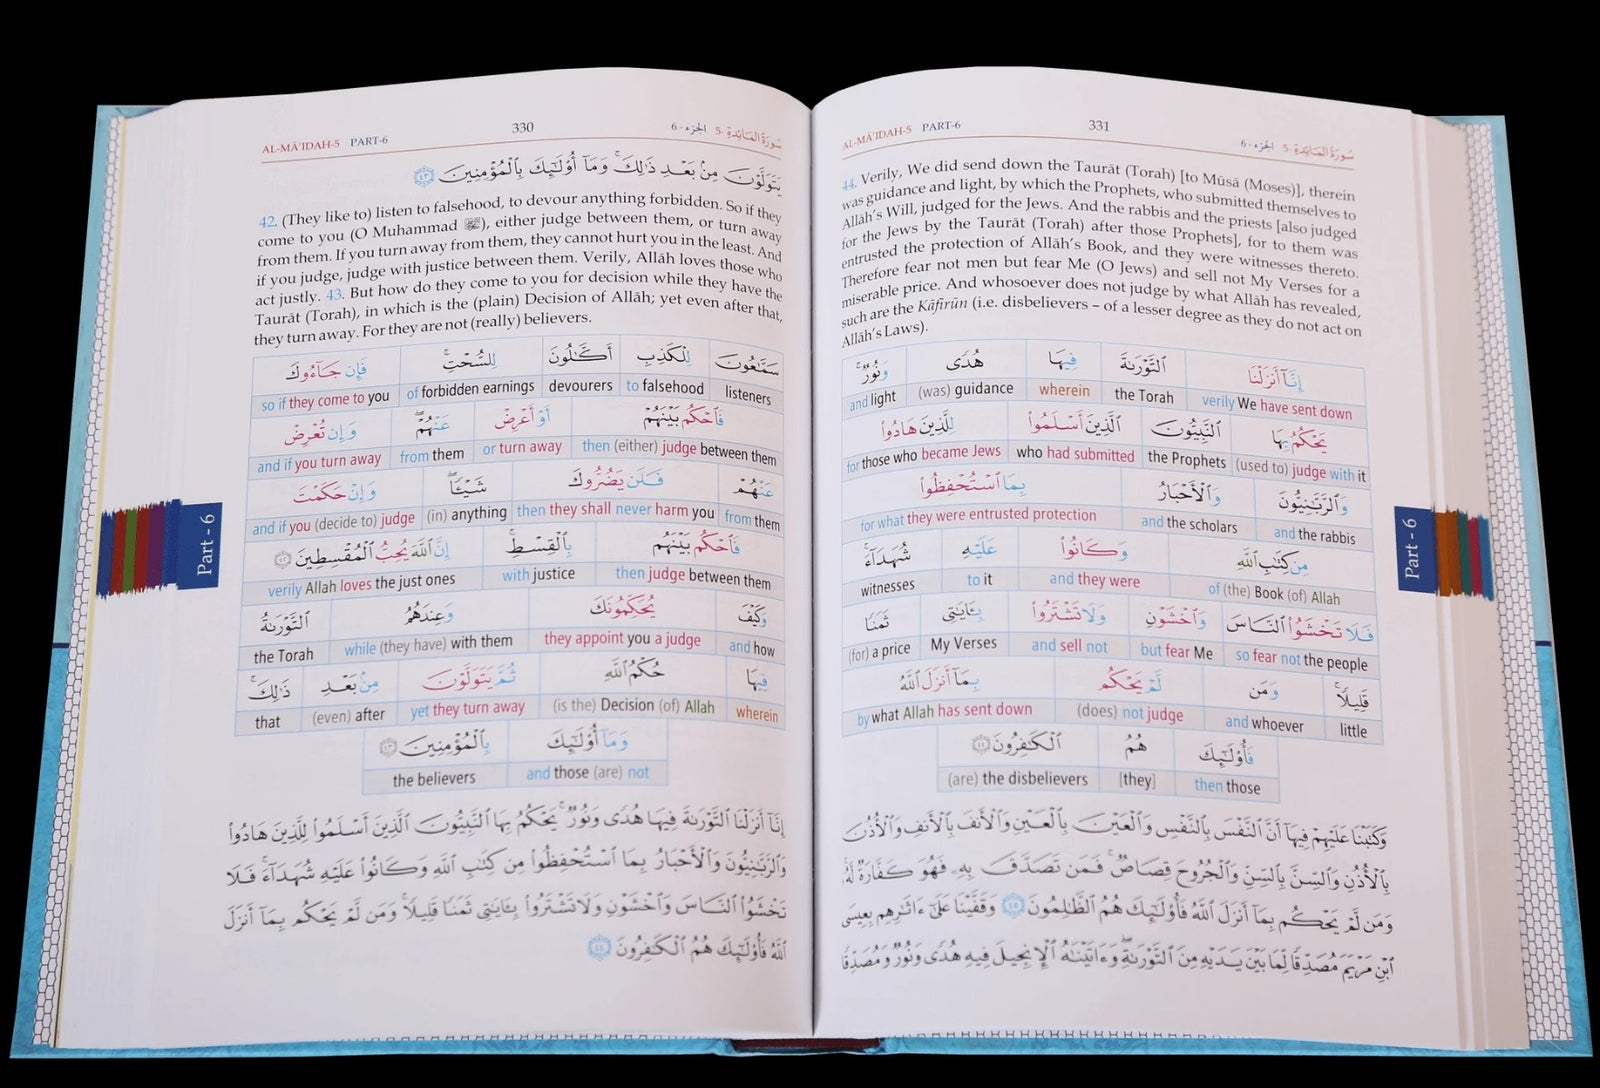 AL-MĀ'IDAH-5 PART-6 330 الجزء - 6 سُورَةُ المَائِدَةِ -5
يَتَوَلَّوْنَ مِنۢ بَعْدِ ذَٰلِكَ ۚ وَمَآ أُو۟لَـٰٓئِكَ بِٱلْمُؤْمِنِينَ ٤٣
42. (They like to) listen to falsehood, to devour anything forbidden. So if they
come to you (O Muhammad ﷺ), either judge between them, or turn away
from them. If you turn away from them, they cannot hurt you in the least. And
if you judge, judge with justice between them. Verily, Allāh loves those who
act justly. 43. But how do they come to you for decision while they have the
Taurāt (Torah), in which is the (plain) Decision of Allāh; yet even after that,
they turn away. For they are not (really) believers.
سَمَّـٰعُونَ لِلْكَذِبِ أَكَّـٰلُونَ لِلسُّحْتِ ۚ فَإِن جَآءُوكَ
so if they come to you of forbidden earnings devourers to falsehood listeners
فَٱحْكُم بَيْنَهُمْ أَوْ أَعْرِضْ عَنْهُمْ ۖ وَإِن تُعْرِضْ
and if you turn away from them or turn away then (either) judge between them
عَنْهُمْ فَلَن يَضُرُّوكَ شَيْـًٔا ۖ وَإِنْ حَكَمْتَ
and if you (decide to) judge (in) anything then they shall never harm you from them
فَٱحْكُم بَيْنَهُم بِٱلْقِسْطِ ۚ إِنَّ ٱللَّهَ يُحِبُّ ٱلْمُقْسِطِينَ ٤٢
verily Allah loves the just ones with justice then judge between them
وَكَيْفَ يُحَكِّمُونَكَ وَعِندَهُمُ ٱلتَّوْرَىٰةُ
the Torah while (they have) with them they appoint you a judge and how
فِيهَا حُكْمُ ٱللَّهِ ثُمَّ يَتَوَلَّوْنَ مِنۢ بَعْدِ ذَٰلِكَ ۚ
that (even) after yet they turn away (is the) Decision (of) Allah wherein
وَمَآ أُو۟لَـٰٓئِكَ بِٱلْمُؤْمِنِينَ ٤٣
the believers and those (are) not
إِنَّآ أَنزَلْنَا ٱلتَّوْرَىٰةَ فِيهَا هُدًى وَنُورٌ ۚ يَحْكُمُ بِهَا ٱلنَّبِيُّونَ ٱلَّذِينَ أَسْلَمُوا۟ لِلَّذِينَ هَادُوا۟
وَٱلرَّبَّـٰنِيُّونَ وَٱلْأَحْبَارُ بِمَا ٱسْتُحْفِظُوا۟ مِن كِتَـٰبِ ٱللَّهِ وَكَانُوا۟ عَلَيْهِ شُهَدَآءَ ۚ فَلَا
تَخْشَوُا۟ ٱلنَّاسَ وَٱخْشَوْنِ وَلَا تَشْتَرُوا۟ بِـَٔايَـٰتِى ثَمَنًا قَلِيلًا ۚ وَمَن لَّمْ يَحْكُم بِمَآ أَنزَلَ
ٱللَّهُ فَأُو۟لَـٰٓئِكَ هُمُ ٱلْكَـٰفِرُونَ ٤٤
Part - 6
AL-MĀ'IDAH-5 PART-6 331 الجزء - 6 سُورَةُ المَائِدَةِ -5
44. Verily, We did send down the Taurāt (Torah) [to Mūsā (Moses)], therein
was guidance and light, by which the Prophets, who submitted themselves to
Allāh's Will, judged for the Jews. And the rabbis and the priests [also judged
for the Jews by the Taurāt (Torah) after those Prophets], for to them was
entrusted the protection of Allāh's Book, and they were witnesses thereto.
Therefore fear not men but fear Me (O Jews) and sell not My Verses for a
miserable price. And whosoever does not judge by what Allāh has revealed,
such are the Kāfirūn (i.e. disbelievers – of a lesser degree as they do not act on
Allāh's Laws).
إِنَّآ أَنزَلْنَا ٱلتَّوْرَىٰةَ فِيهَا هُدًى وَنُورٌ ۚ
and light (was) guidance wherein the Torah verily We have sent down
يَحْكُمُ بِهَا ٱلنَّبِيُّونَ ٱلَّذِينَ أَسْلَمُوا۟ لِلَّذِينَ هَادُوا۟
for those who became Jews who had submitted the Prophets (used to) judge with it
وَٱلرَّبَّـٰنِيُّونَ وَٱلْأَحْبَارُ بِمَا ٱسْتُحْفِظُوا۟
for what they were entrusted protection and the scholars and the rabbis
مِن كِتَـٰبِ ٱللَّهِ وَكَانُوا۟ عَلَيْهِ شُهَدَآءَ ۚ
witnesses to it and they were of (the) Book (of) Allah
فَلَا تَخْشَوُا۟ ٱلنَّاسَ وَٱخْشَوْنِ وَلَا تَشْتَرُوا۟ بِـَٔايَـٰتِى ثَمَنًا
(for) a price My Verses and sell not but fear Me so fear not the people
قَلِيلًا ۚ وَمَن لَّمْ يَحْكُم بِمَآ أَنزَلَ ٱللَّهُ
by what Allah has sent down (does) not judge and whoever little
فَأُو۟لَـٰٓئِكَ هُمُ ٱلْكَـٰفِرُونَ ٤٤
(are) the disbelievers [they] then those
وَكَتَبْنَا عَلَيْهِمْ فِيهَآ أَنَّ ٱلنَّفْسَ بِٱلنَّفْسِ وَٱلْعَيْنَ بِٱلْعَيْنِ وَٱلْأَنفَ بِٱلْأَنفِ وَٱلْأُذُنَ
بِٱلْأُذُنِ وَٱلسِّنَّ بِٱلسِّنِّ وَٱلْجُرُوحَ قِصَاصٌ ۚ فَمَن تَصَدَّقَ بِهِۦ فَهُوَ كَفَّارَةٌ لَّهُۥ ۚ
وَمَن لَّمْ يَحْكُم بِمَآ أَنزَلَ ٱللَّهُ فَأُو۟لَـٰٓئِكَ هُمُ ٱلظَّـٰلِمُونَ ٤٥ وَقَفَّيْنَا عَلَىٰٓ ءَاثَـٰرِهِم بِعِيسَى
ٱبْنِ مَرْيَمَ مُصَدِّقًا لِّمَا بَيْنَ يَدَيْهِ مِنَ ٱلتَّوْرَىٰةِ ۖ وَءَاتَيْنَـٰهُ ٱلْإِنجِيلَ فِيهِ هُدًى وَنُورٌ وَمُصَدِّقًا
Part - 6